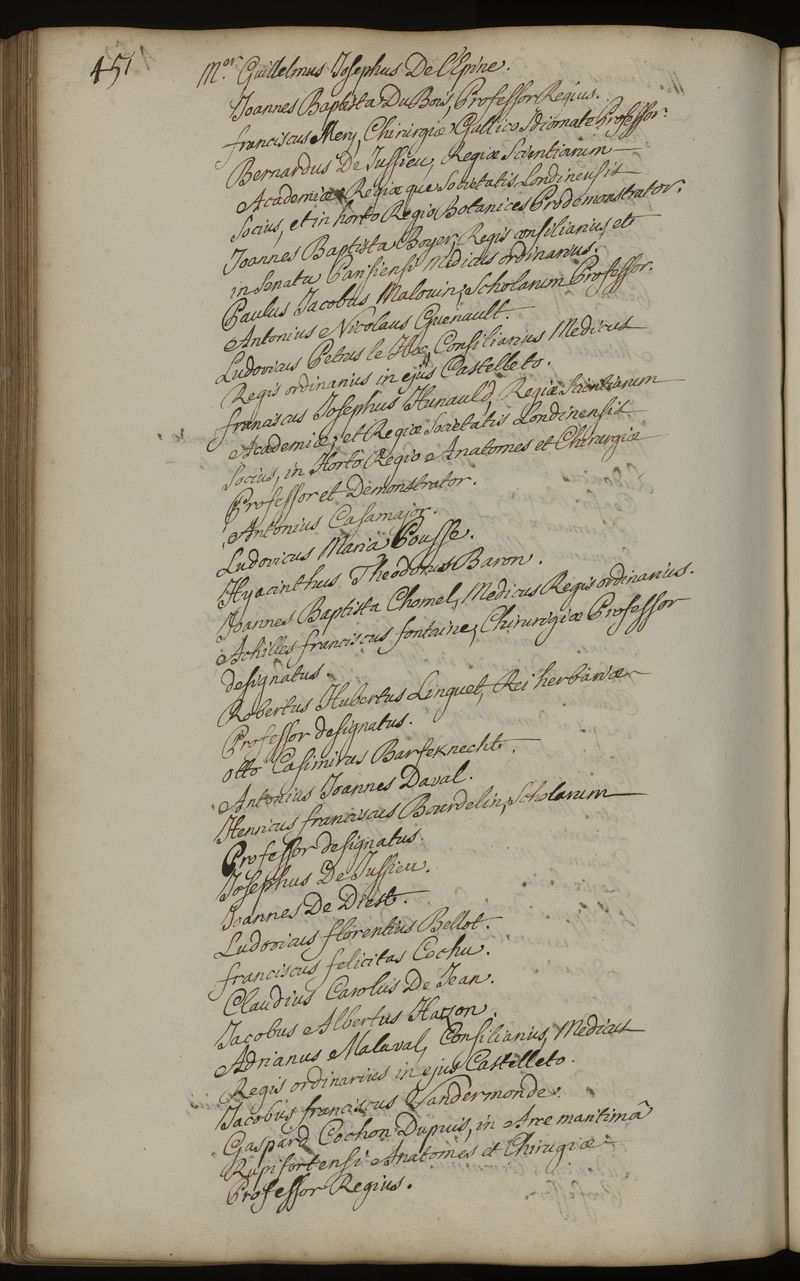 451
M.or Guillelmus Josephus De l'Epine.
Joannes Baptista DuBois, Professor Regius.
franciscus Mery, Chirurgiæ Gallico Idiomate Professor.
Bernardus De Jussieu, Regiæ Scientiarum
Academiæ, Regiæ que Societatis Londinensis
Socius, et in horto Regio Botanices Prodemonstrator.
Joannes Baptista Boyer, Regis consiliarius, et
in Senatu Parisiensi Medicus ordinarius.
Paulus Jacobus Malouin, Scholarum Professor.
Antonius Nicolaus Guenault.
Ludovicus Petrus le Hoc, Consiliarius Medicus
Regis ordinarius in ejus Castelleto.
franciscus Josephus Hunauld, Regiæ Scientiarum
Academiæ, et Regiæ Societatis Londinensis
Socius, in Horto Regio Anatomes et Chirurgiæ
Professor et Demonstrator.
Antonius Casamajor.
Ludovicus Maria Pousse.
Hyacinthus Theodorus Baron.
Joannes Baptista Chomel, Medicus Regis ordinarius.
Achilles franciscus fontaine, Chirurgiæ Professor
designatus.
Robertus Hubertus Linguet, Rei herbariæ
Professor designatus.
Otto Casimirus Barfeknecht.
Antonius Joannes Daval.
Henricus franciscus Bourdelin, Scholarum
Professor designatus.
Josephus De Jussieu.
Joannes De Diest.
Ludovicus florentius Bellot.
franciscus felicitas Cochu.
Claudius Carolus De Jean.
Jacobus Albertus Hazon.
Adrianus Malaval, Consiliarius, Medicus
Regis ordinarius in ejus Castelleto.
Jacobus franciscus Vandermonde.
Gaspard Cochon Dupuis, in Arce maritimâ
Rupifortensi Anatomes et Chirugiæ
Professor Regius.